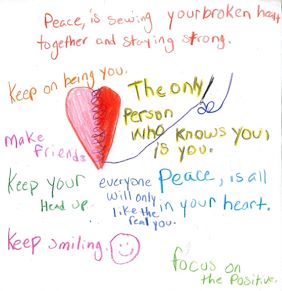 Peace, is sewing your broken heart
together and staying strong.
Keep on being you.
The only
Person
who knows you,
is you.
make
friends
Keep your
Head up.
everyone
will only
like the
real you.
Peace, is all
in your heart.
Keep smiling.
focus on
the Positive.